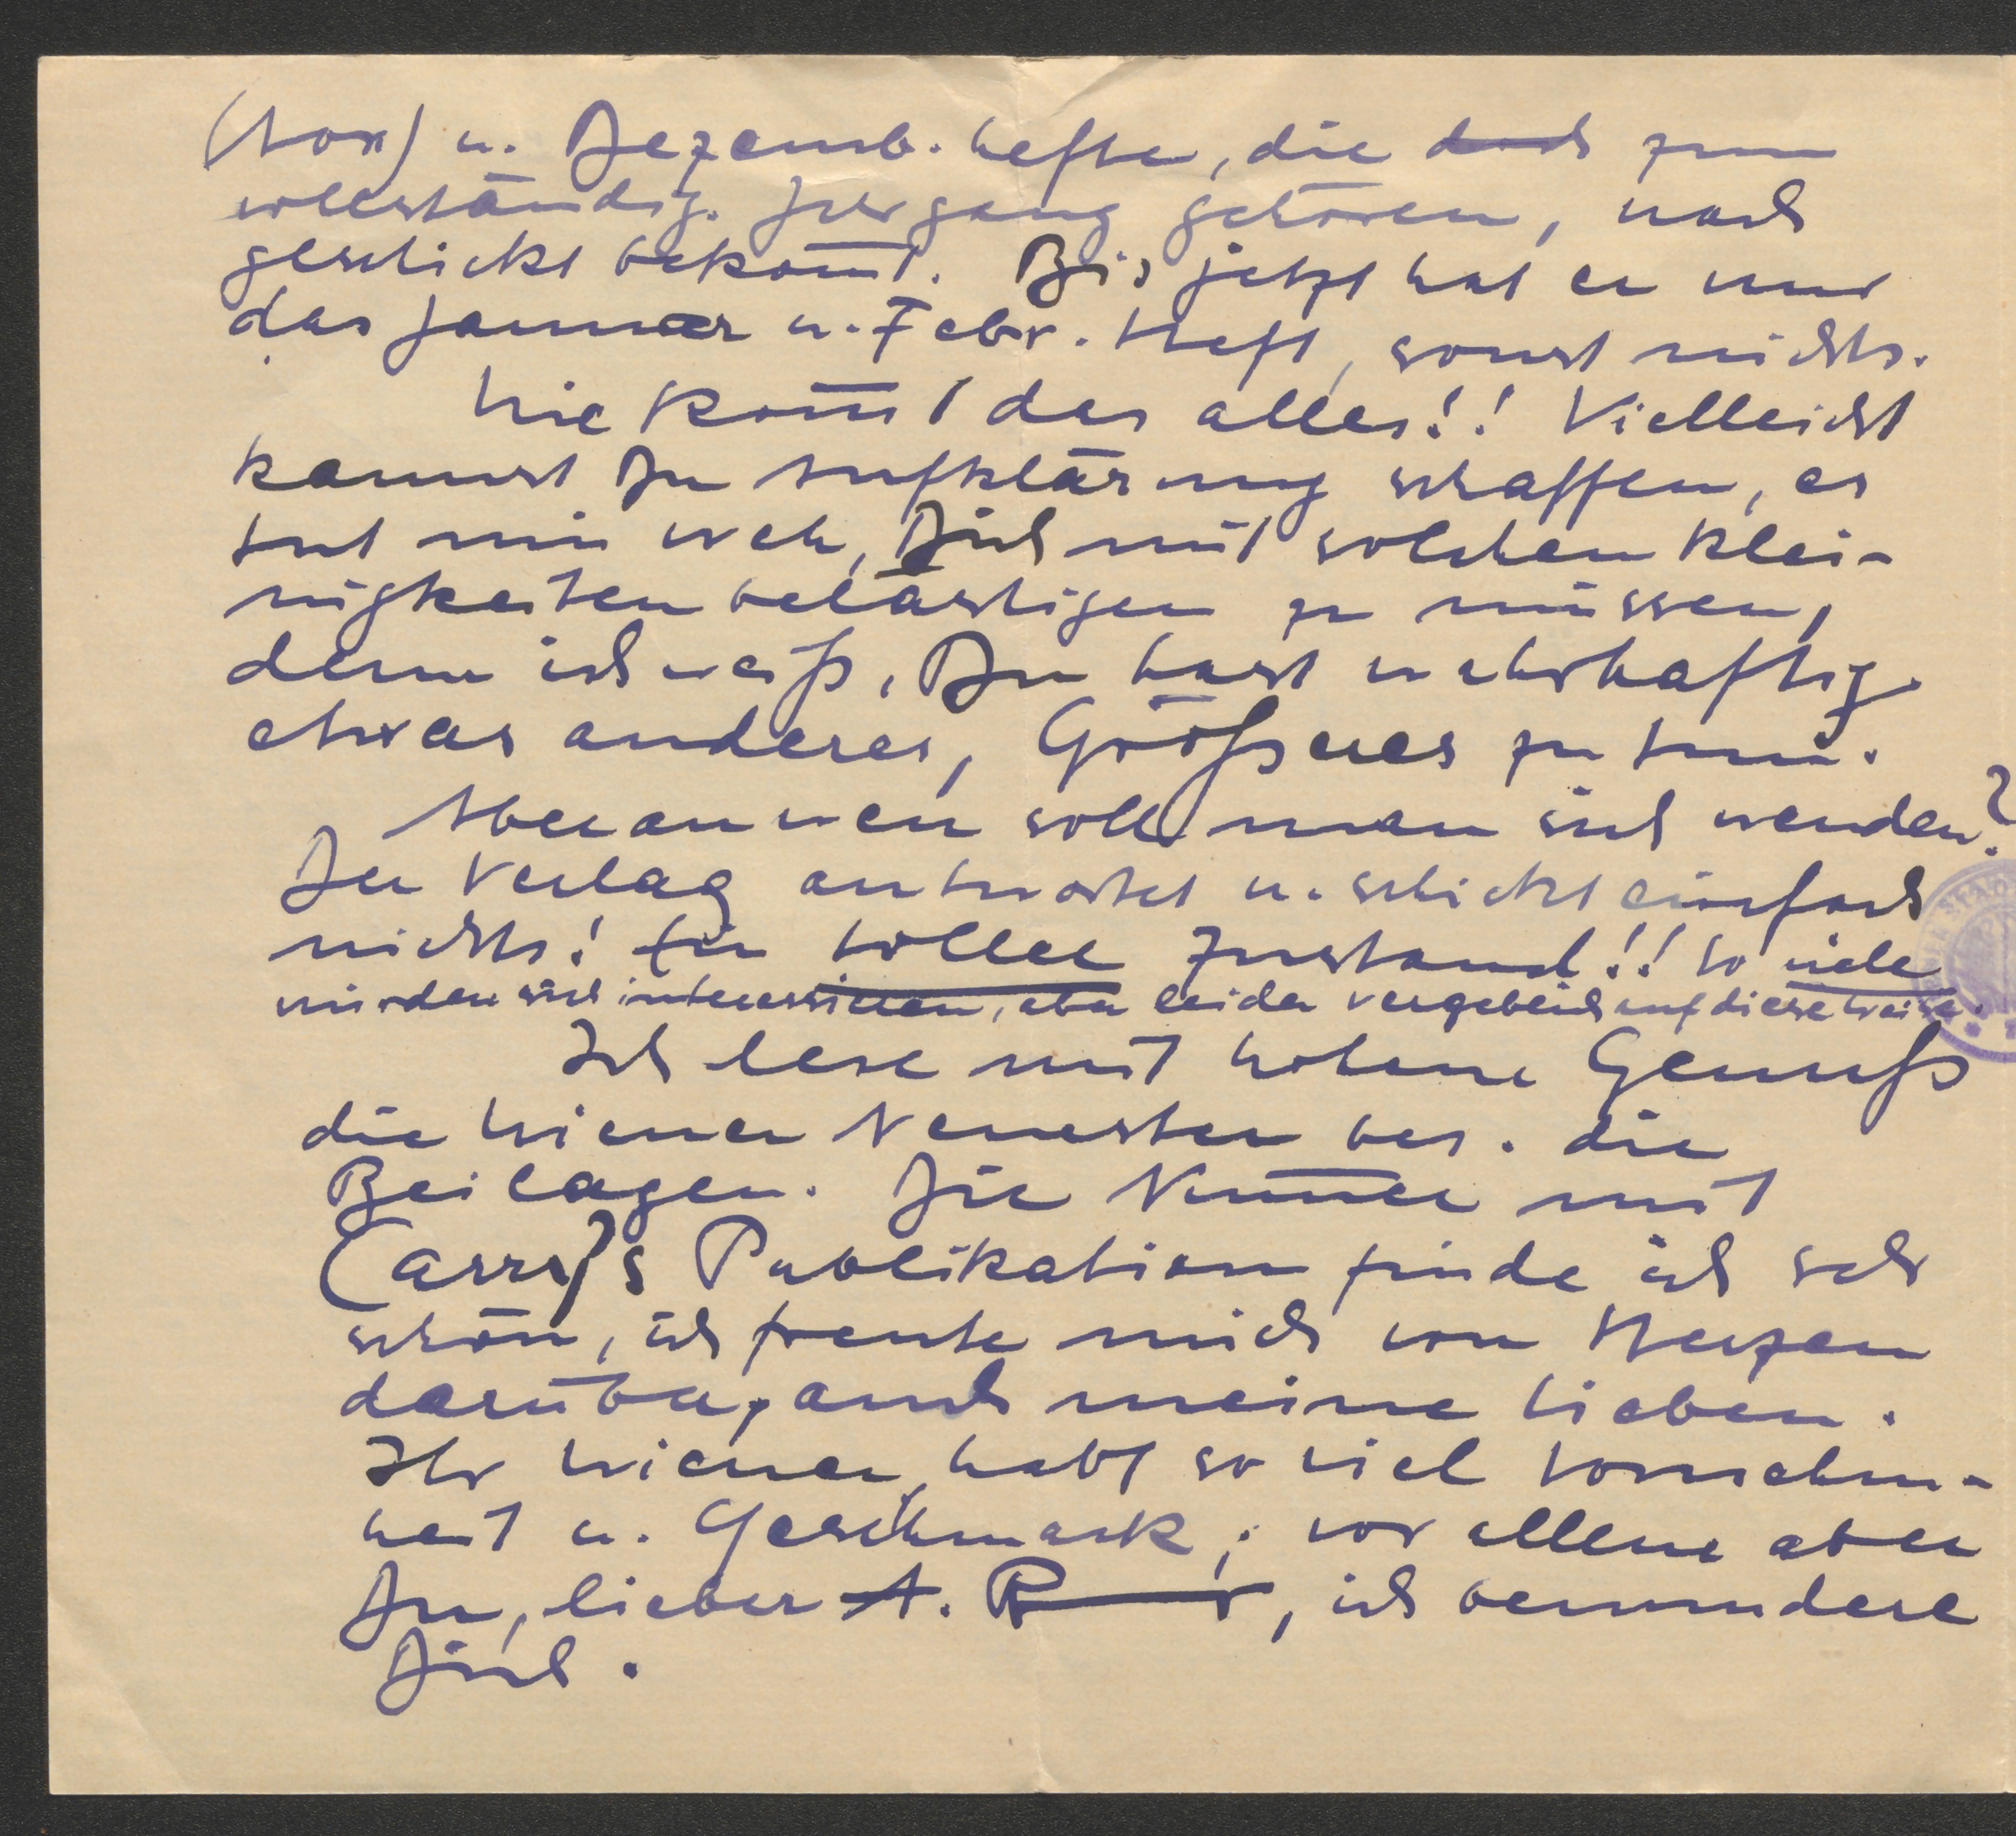 (Nov) u. Dezemb. hefte, die doch zum
vollständig. Jargang gehören, nach
geschickt bekom̄t. Bis jetzt hat er nur
das Januar u. Febr. Heft, sonst nichts.
Wie kom̄t das alles!! Vielleicht
kannst Du Aufklärung schaffen, es
tut mir weh, Dich mit solchen Klei-
nigkeiten belästigen zu müssen,
denn ich weiß, Du hast wahrhaftig
etwas anderes, Größeres zu tun.
Aber an wen soll man sich wenden?
Der Verlag antwortet u. schickt einfach
nichts! Ein toller Zustand!! So viele
würden sich interessieren, aber leider vergeblich auf diese Weise.
Ich lese mit hohem Genuß
die Wiener Neuesten bes. die
Beilagen. Die Num̄er mit
Carry's Publikation finde ich sehr
schön, ich freute mich von Herzen
darüber, auch meine Lieben.
Ihr Wiener habt so viel Vornehm-
heit u. Geschmack; vor allem aber
Du, lieber A. R, ich bewundere
Dich.